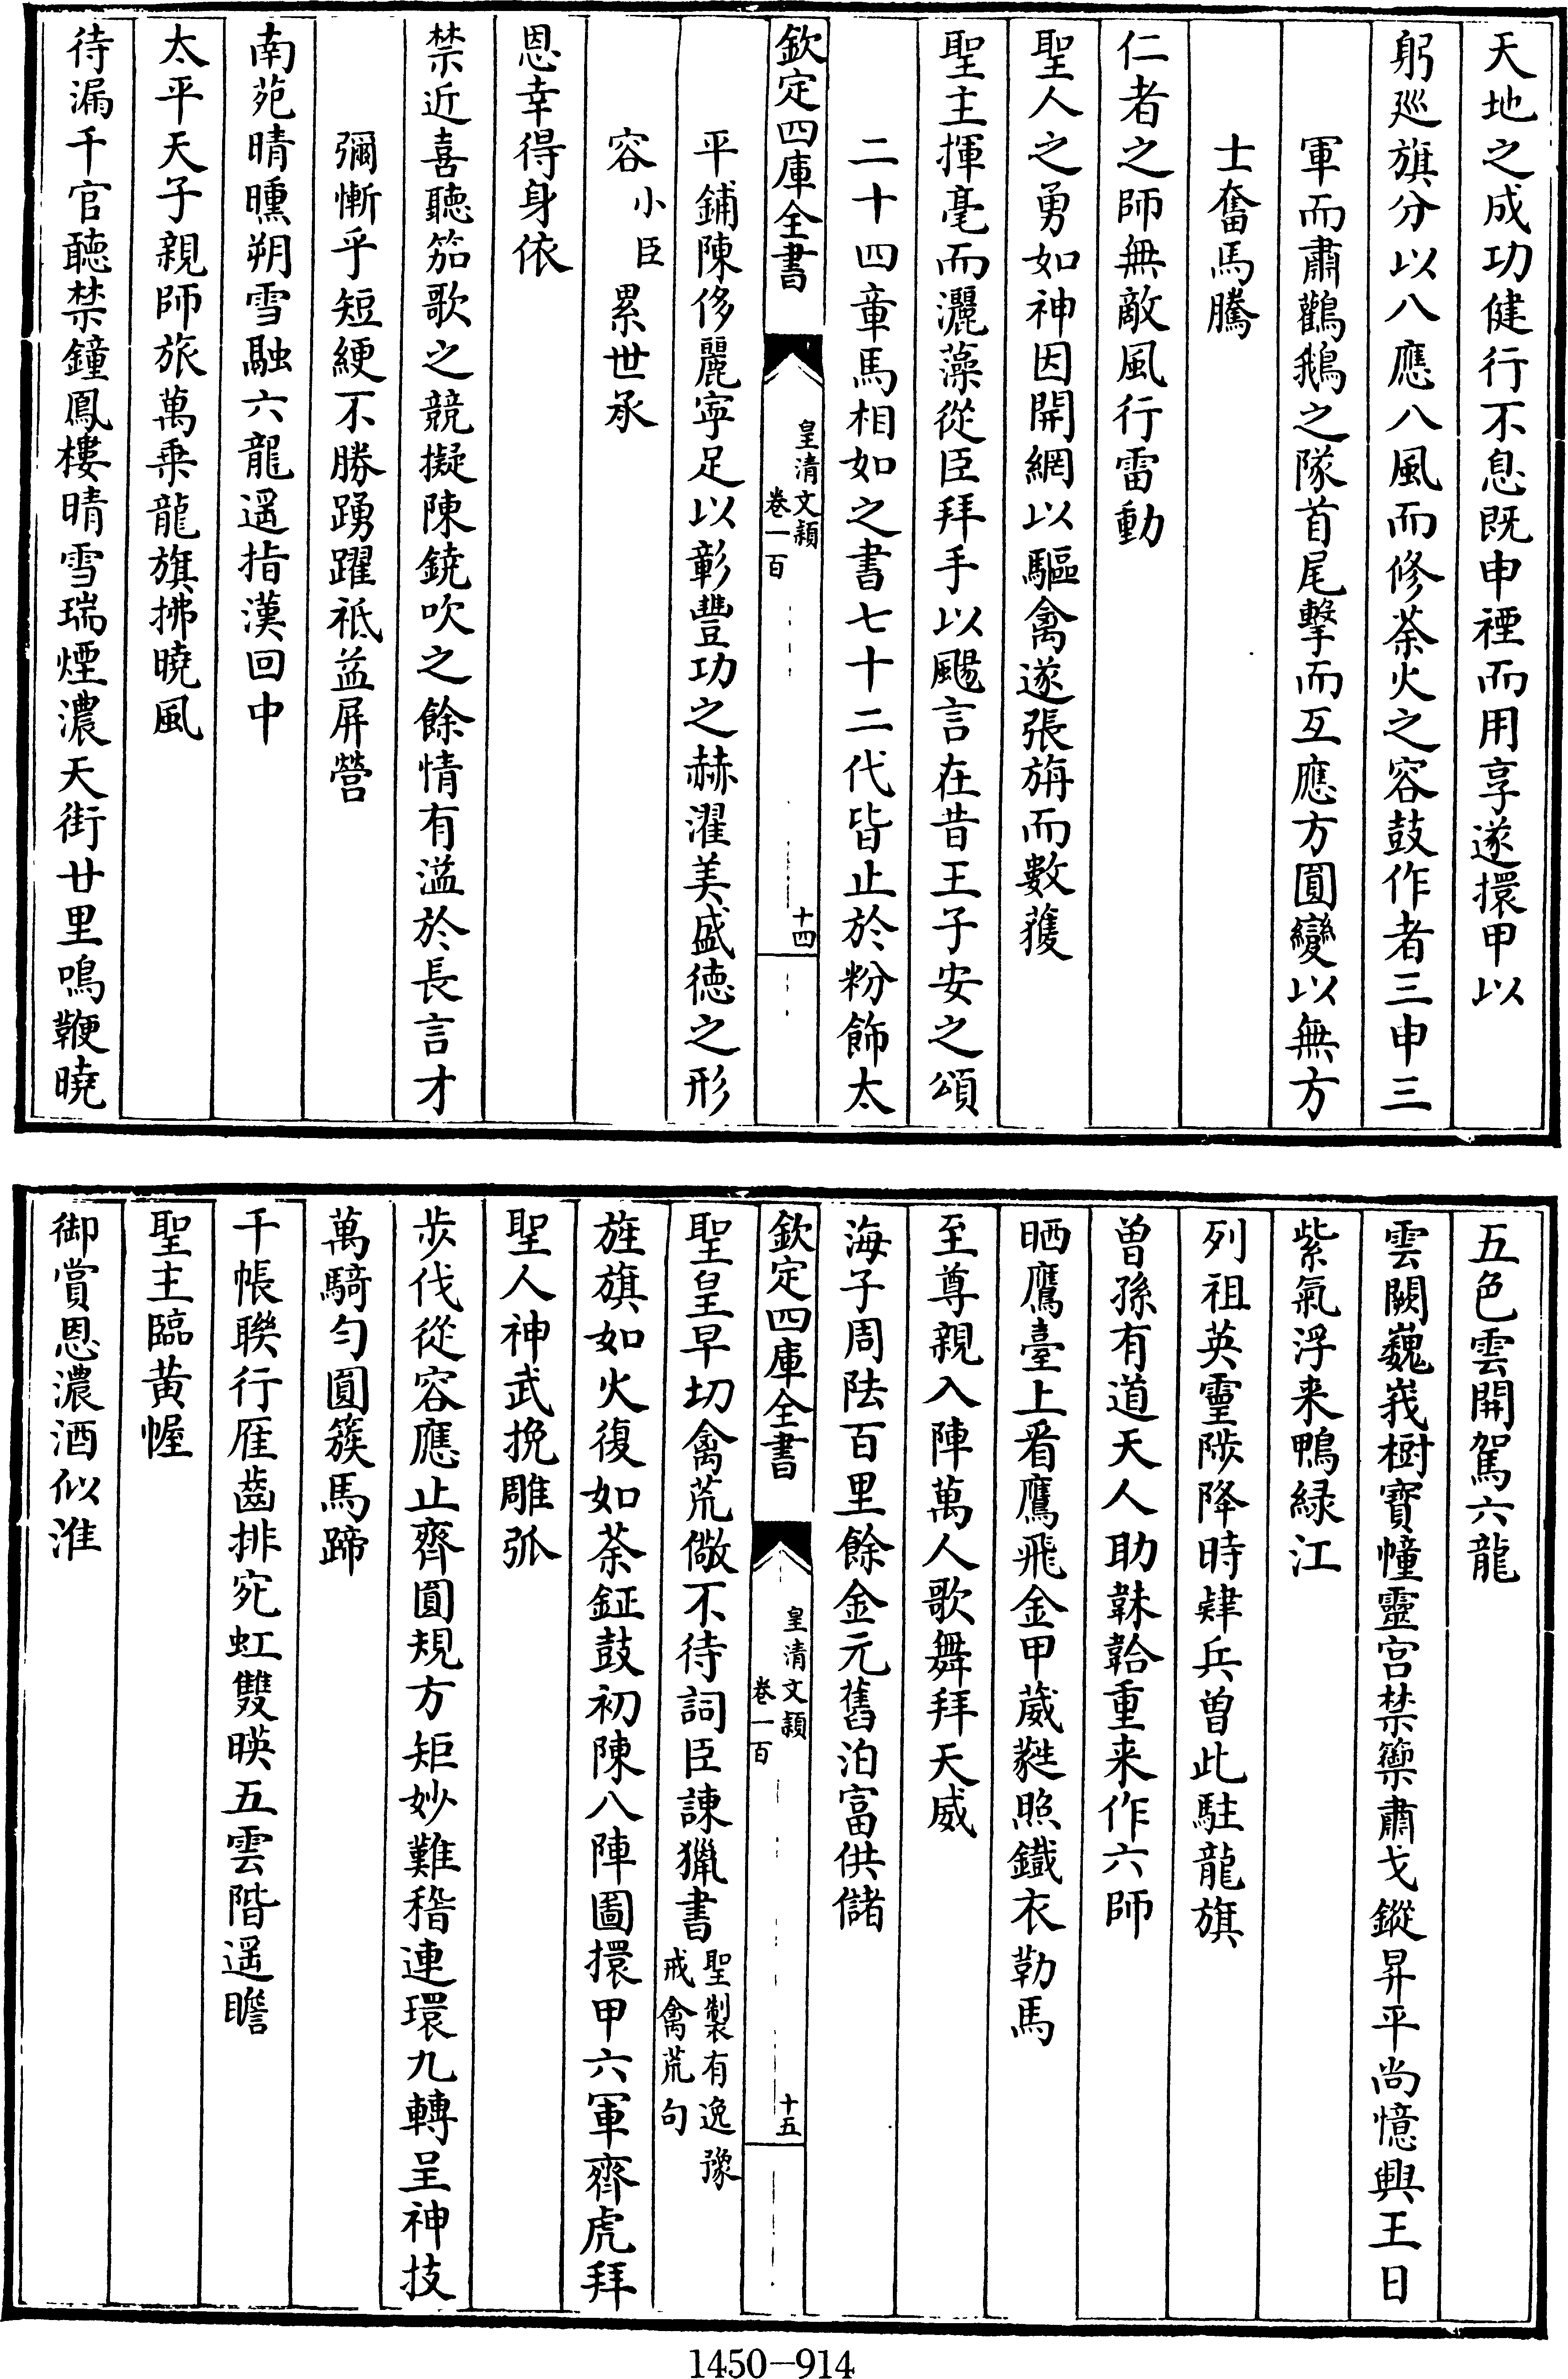 天地之成功健行不息既申禋而用享遂擐甲以
躬廵旗分以八應八風而修荼火之容鼓作者三申三
軍而肅鸛鵝之隊首尾擊而互應方圓變以無方
士奮馬騰
仁者之師無敵風行雷動
聖人之勇如神因開網以驅禽遂張旃而數蒦
聖主揮毫而灑藻從臣拜手以颺言在昔王子安之頌
二十四章馬相如之書七十二代皆止於粉飾太
欽定四庫全書
皇清文穎
卷一百
十四
平鋪陳侈麗寜足以彰豐功之赫濯美盛德之形
容小臣累世承
恩幸得身依
禁近喜聽笳歌之競擬陳鐃吹之餘情有溢於長言才
彌慚乎短綆不勝踴躍祗益屏營
南苑晴曛朔雪融六龍遥指漢回中
太平天子親師旅萬乗龍旗拂曉風
待漏千官聽禁鐘鳳樓晴雪瑞煙濃天街廿里鳴鞭曉
五色雲開駕六龍
雲闕巍峩樹寶幢靈宫禁籞肅戈鏦昇平尚憶興王日
紫氣浮来鴨緑江
列祖英靈陟降時肆兵曽此駐龍旗
曽孫有道天人助韎韐重来作六師
晒鷹臺上看鷹飛金甲葳蕤照鐵衣勒馬
至尊親入陣萬人歌舞拜天威
海子周阹百里餘金元舊泊富供儲
欽定四庫全書
皇清文穎
卷一百
十五
聖皇早切禽荒儆不待詞臣諫獵書聖製有逸豫戒禽荒句
旌旗如火復如荼鉦鼓初陳八陣圖擐甲六軍齊虎拜
聖人神武挽雕弧
步伐從容應止齊圓規方矩妙難稽連環九轉呈神技
萬騎匀圓簇馬蹄
千帳聯行雁齒排宛虹雙暎五雲階遥瞻
聖主臨黄幄
御賞恩濃酒似淮
1450-914